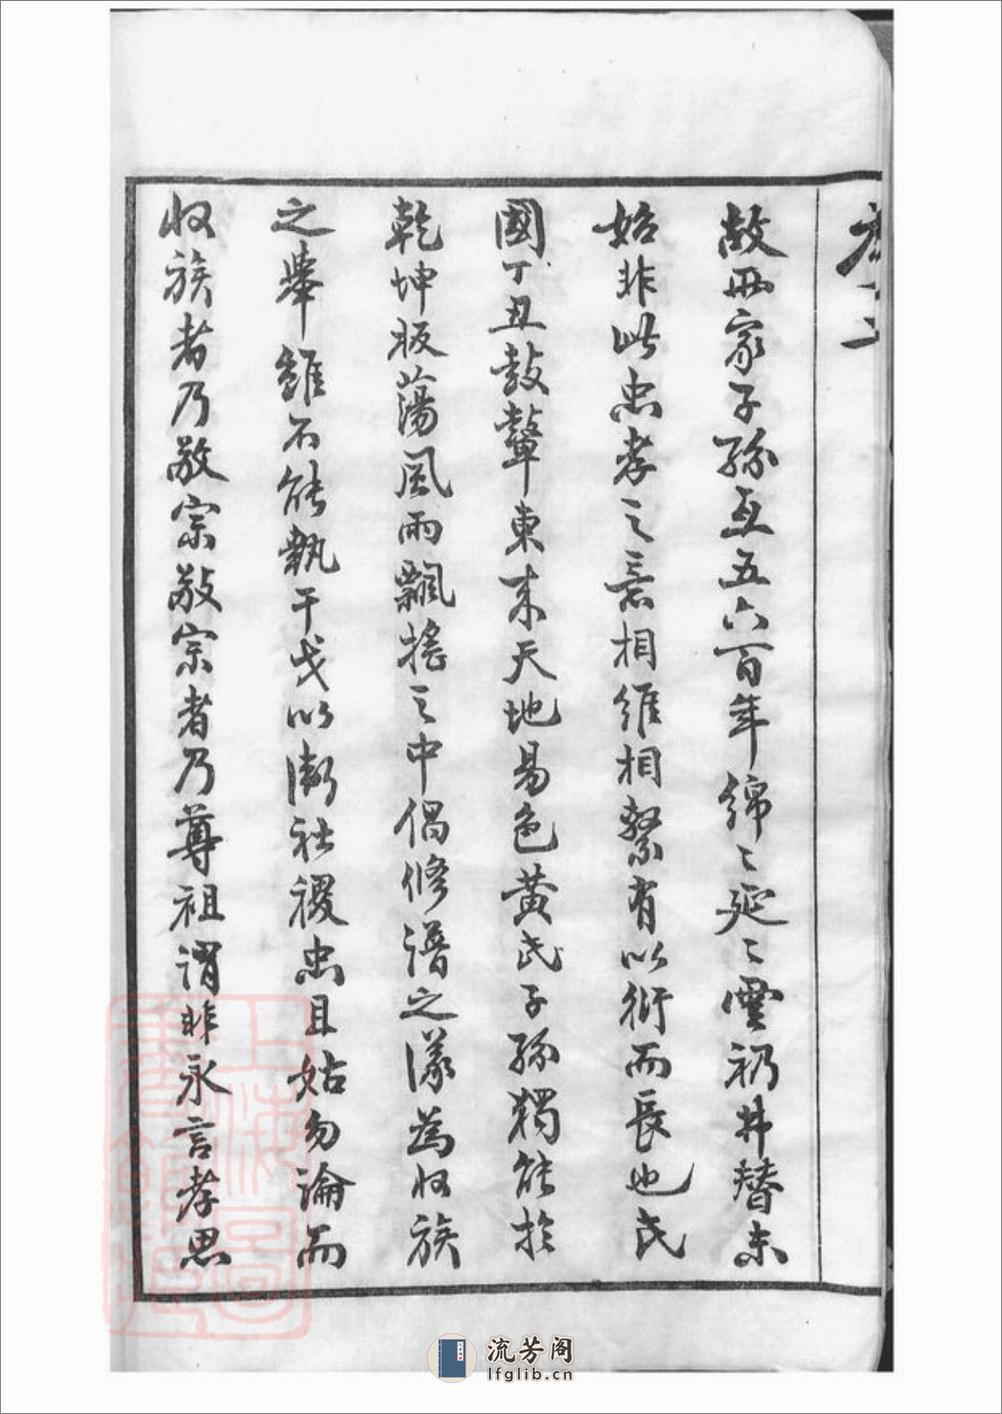 故兩家子孫亙五六百年綿〻延〻雲礽弗替未
始非此忠孝之裔相維相繫有以衍而長也民
國丁丑鼓鼙東來天地易色黃氏子孫獨能於
乾坤版蕩風雨飄搖之中倡修譜之議為收族
之舉雖不能執干戈以衛社稷忠且姑勿論而
收族者乃敬宗敬宗者乃尊祖謂非永言孝思
上海圖書館藏
流芳阁
lfglib.cn